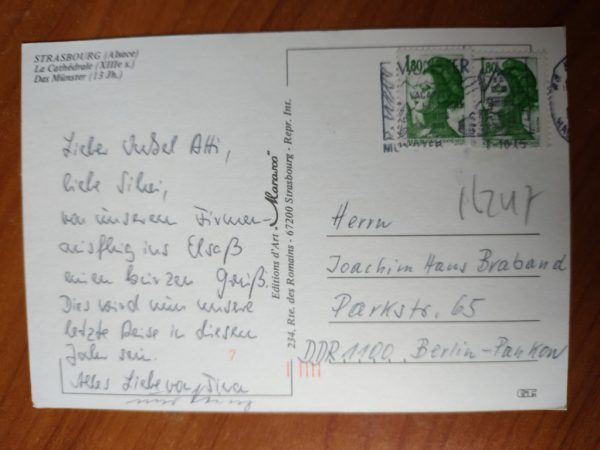 STRASBOURG (Alsace)
La Cathédrale (XIIIe s.)
Das Münster (13 Jh.)
Lieber Onkel Atti,
liebe Silvi,
von unserem Firmen-
ausflug ins Elsaß
einen kurzen Gruß.
Dies wird nun unsere
letzte Reise in diesem
Jahr sein.
Alles Liebe von Tina
und
Editions d'Art "Marasco"
234, Rte. des Romains - 67200 Strasbourg - Repr. Int.
1,80
1,80
Herrn
Joachim Hans Braband
Parkstr. 65
DDR 1100 Berlin-Pankow